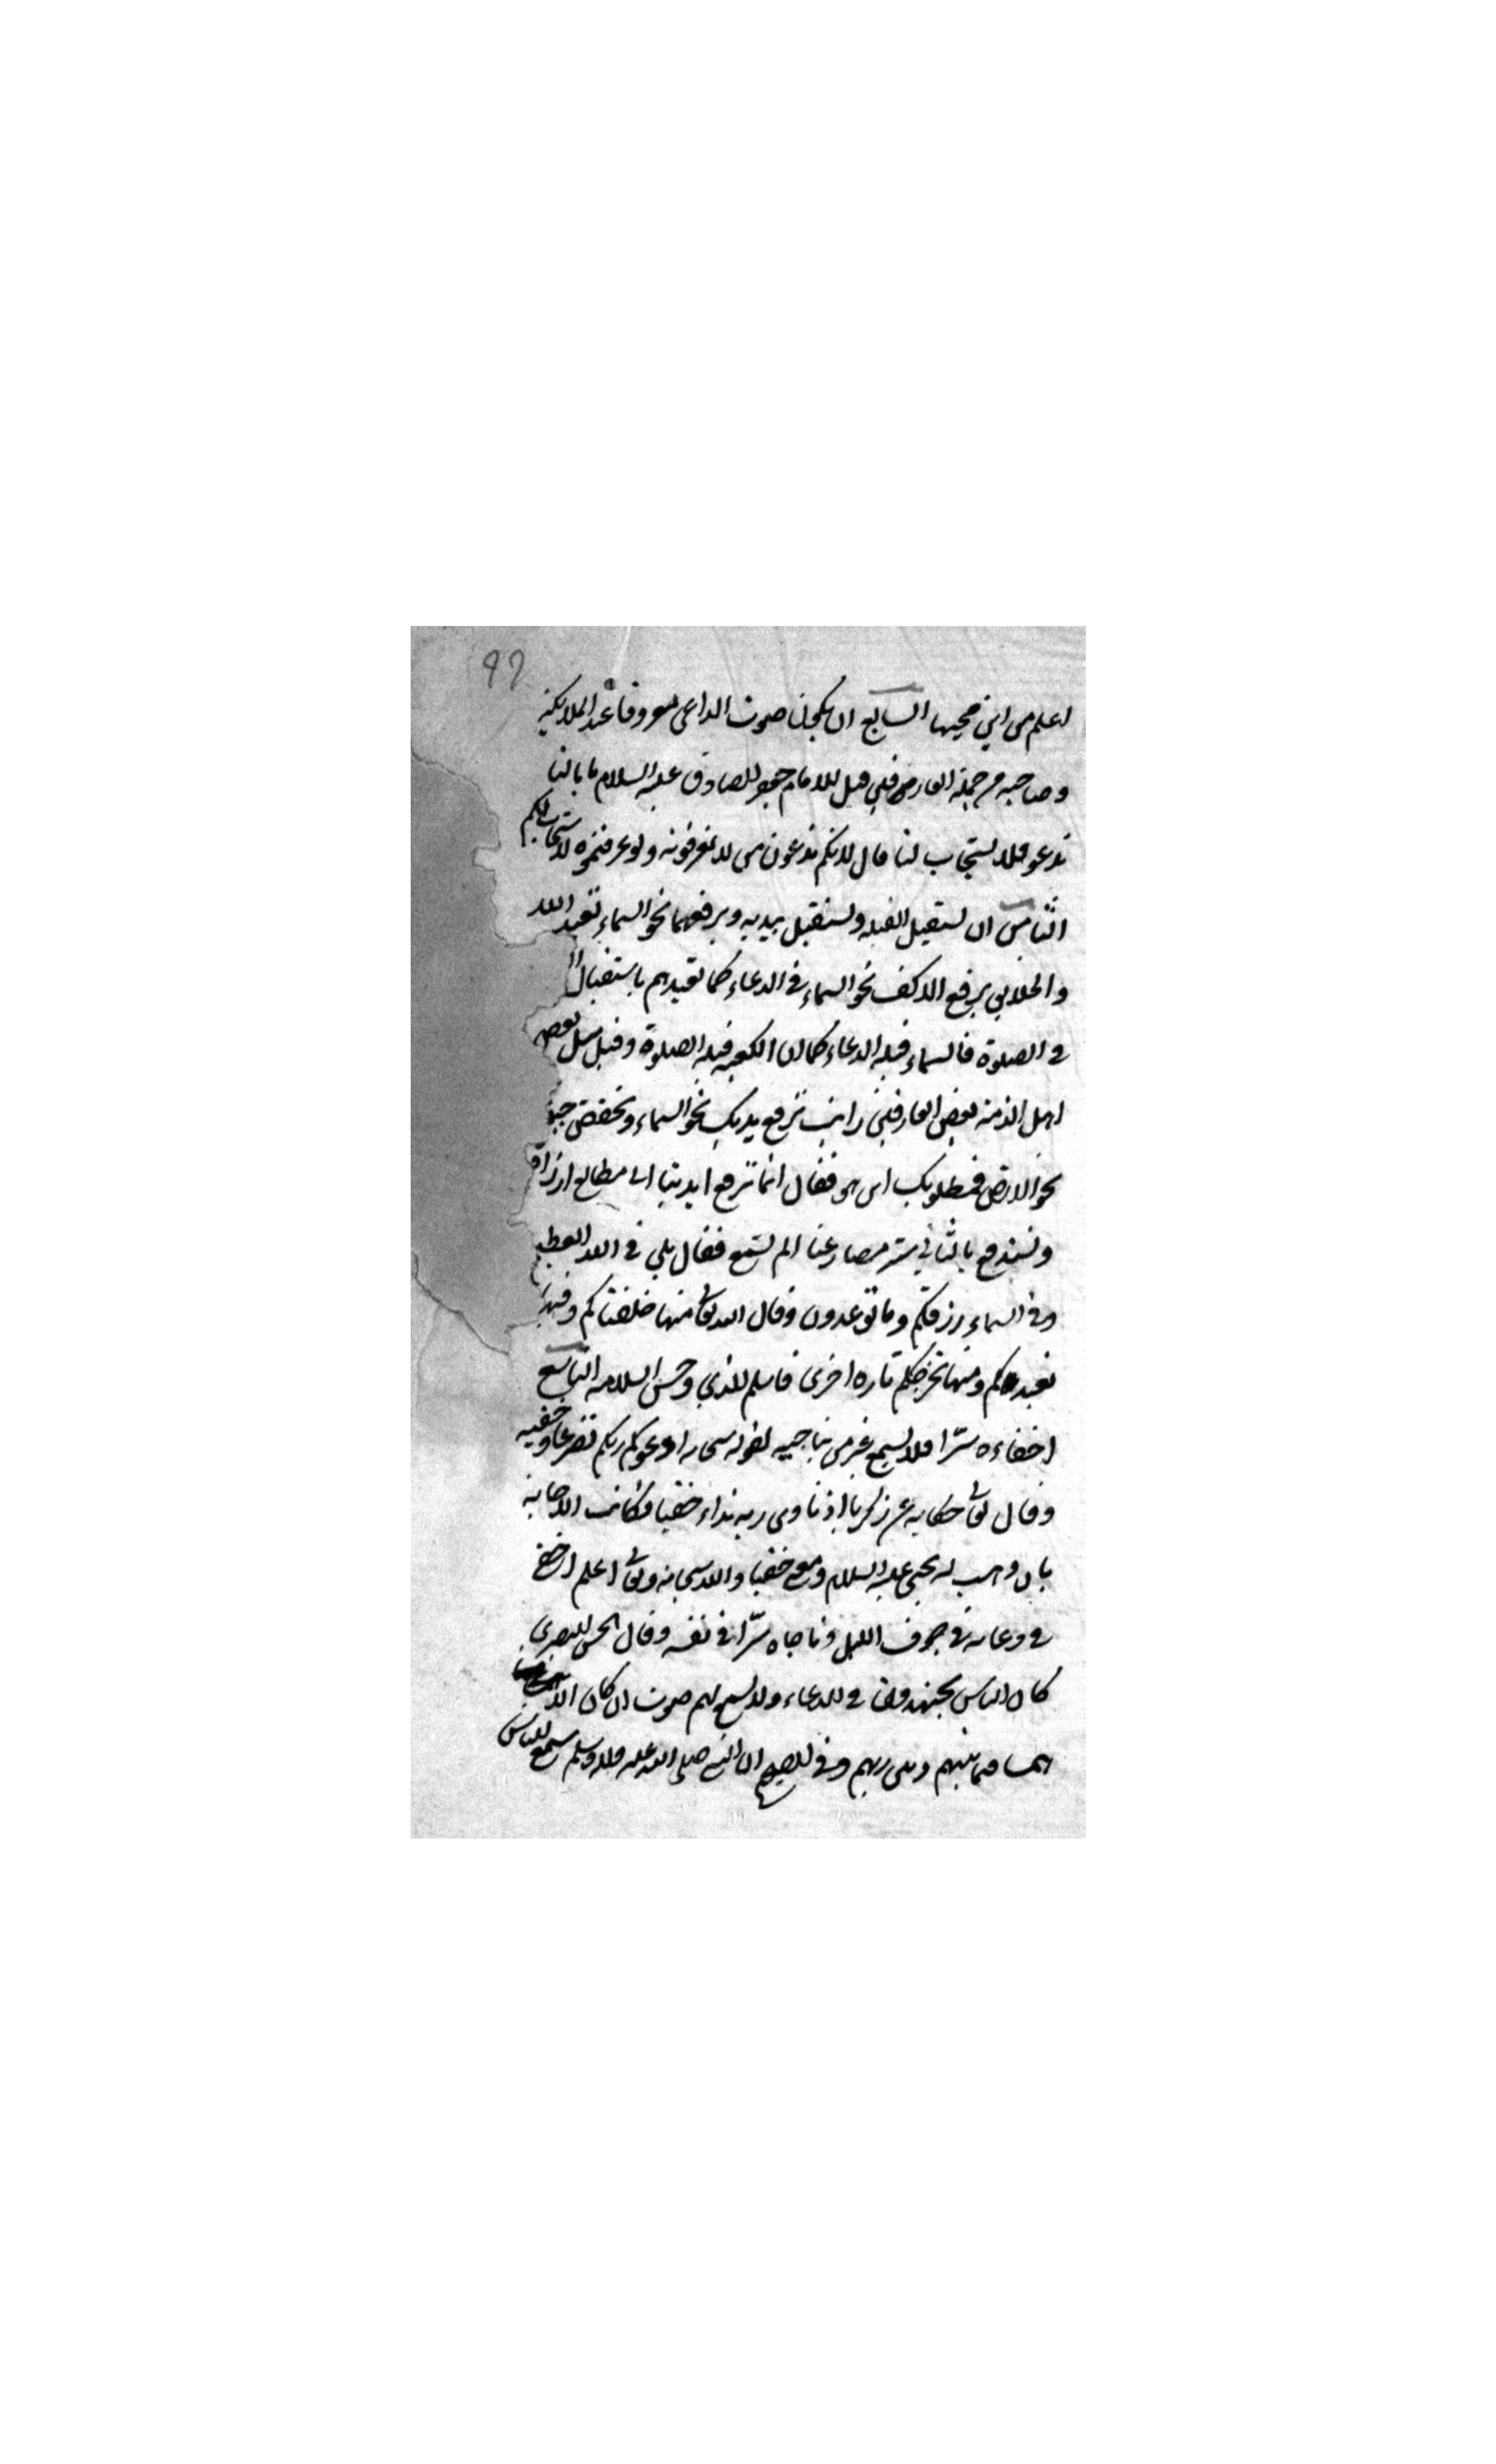 ٩٢
اعلم من اين مجيئها السابع ان يكون صوت الداعى معروفا عند الملائكة
وصاحبه من جملة العارفين قيل للامام جعفر الصادق عليه السلام ما بالنا
ندعو فلا يستجاب لنا قال لانكم تدعون من لا تعرفونه ولو عرفتموه لاستجاب لكم
الثامن ان يستقبل القبله ويستقبل بيديه ويرفعهما نحو السماء تعبد الله
والخلايق برفع الاكف نحو السماء فى الدعاء كما تعبدهم باستقبال
فى الصلوة فالسماء قبلة الدعاء كما ان الكعبه قبلة الصلوة وقيل سئل بعض
اهل الذمة بعض العارفين رايت ترفع يديك نحو السماء وتخفض جبه
نحو الارض فمطلوبك اين هو فقال انما نرفع ايدينا الى مطالع ارزاق
ونستدفع بالثاني شر مصارعنا الم تسمع فقال بلى فى الله العظيم
وفى السماء رزقكم وما توعدون وقال الله تعالى منها خلقناكم وفيها
نعيدكم ومنها نخرجكم تاره اخرى فاسلم الذمي وحسن اسلامه التاسع
اخفاءه سرّا فلا يسمع غير من يناجيه لقوله سبحانه ادعوا ربكم تضرعا وخفيه
وقال تعالى حكايه عن زكريا اذ نادى ربه نداء خفيا فكانت الاجابة
بان وهب له يحيى عليه السلام ومعنى خفيا والله سبحانه وتعالى اعلم اخفى
فى دعائه فى جوف الليل وناجاه سرّا فى نفسه وقال الحسن البصرى
كان الناس يجتهدون فى الدعاء ولا يسمع لهم صوت ان كان الا
همسا فيما بينهم وبين ربهم وفى الصحيح ان النبى صلى الله عليه وآله وسلم سمع الناس